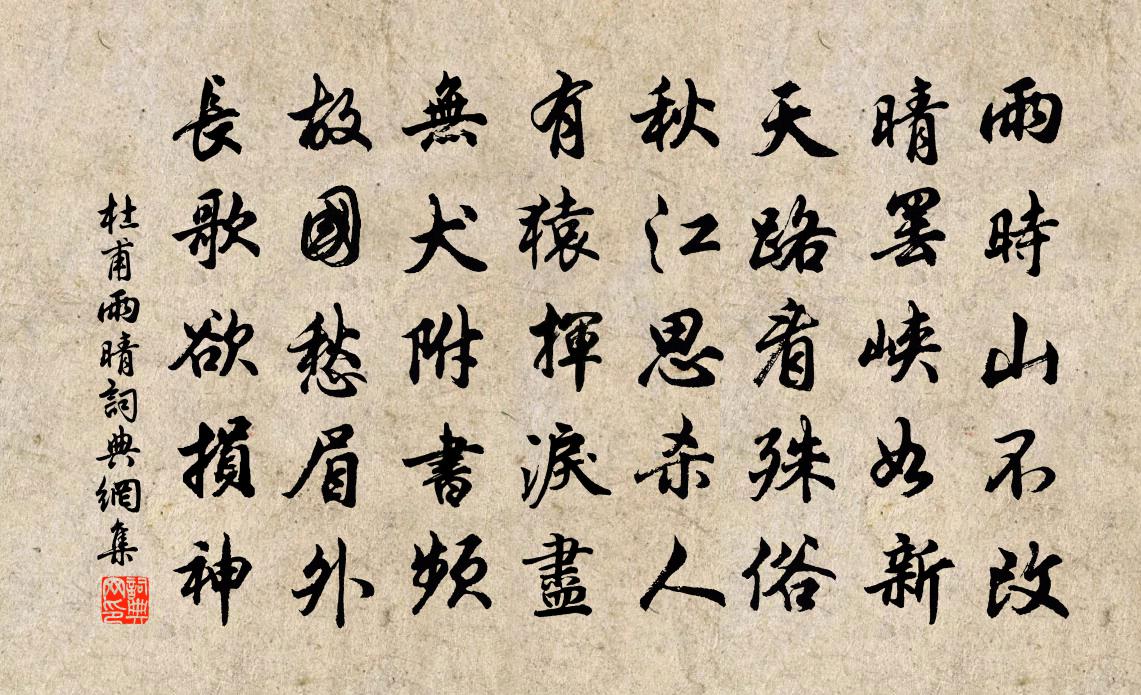 雨時山不改
晴罷峽如新
天路看殊俗
秋江思杀人
有猿揮淚盡
無犬附書頻
故國愁眉外
長歌欲損神
杜甫雨晴詞典網集
詞典網印